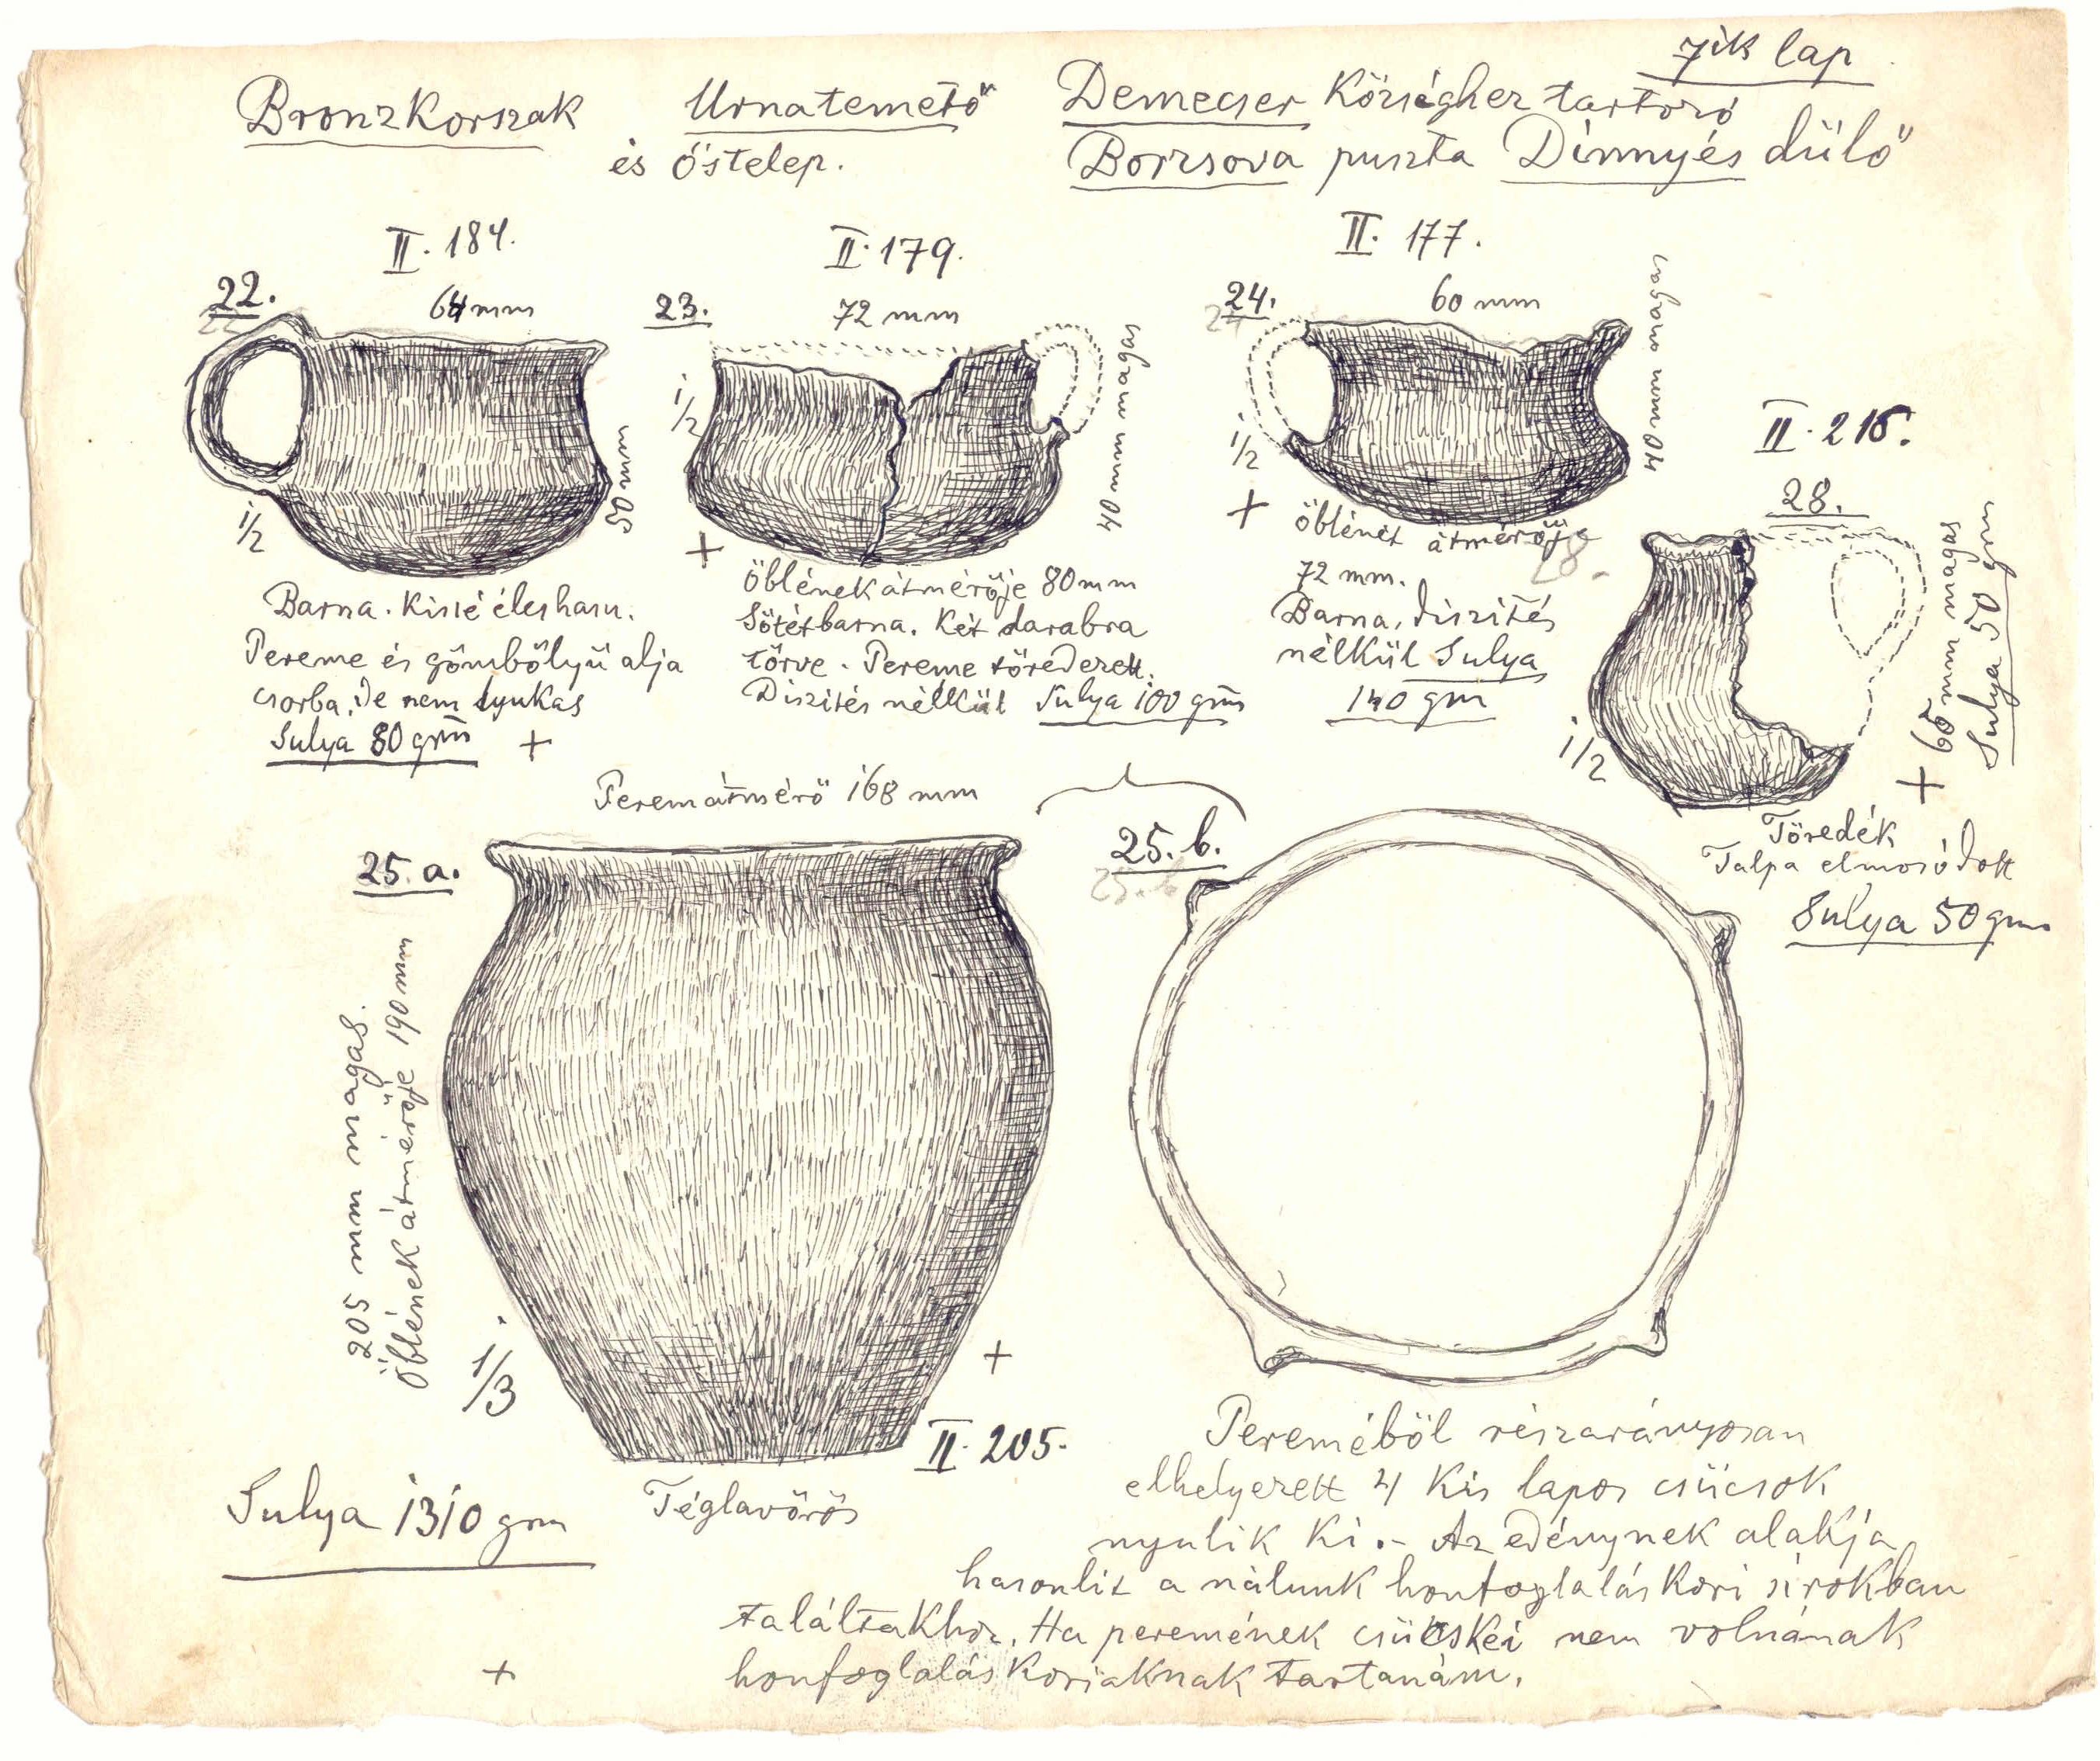 7ik lap
Bronzkorszak
Urnatemető
és őstelep.
Demecser Községhez tartozó
Borzsova puszta Dinnyés dülő
II. 184.
22.
64 mm
50 mm
1/2
Barna. Kissé éles hasu.
Pereme és gömbölyü alja
csorba, de nem lyukas
Sulya 80 grm +
II. 179.
23.
72 mm
40 mm magas
1/2
+
Öblének átmérője 80 mm
Sötétbarna. Két darabra
törve. Pereme töredezett.
Diszités nélkül Sulya 100 grm
II. 177.
24.
60 mm
40 mm magas
1/2
+
öblének átmérője
72 mm.
Barna, diszités
nélkül Sulya
140 grm
II. 216.
28.
28.
1/2
+ 65 mm magas
Sulya 50 grm
Töredék
Talpa elmosódott
Sulya 50 grm
Peremátmérő 168 mm
25. a.
205 mm magas.
Öblének átmérője 190 mm
1/3
+
II. 205.
Téglavörös
Sulya 1310 grm
25. b.
25. b
Pereméböl részarányosan
elhelyezett 4 Kis lapos csücsok
nyulik Ki.- Az edénynek alakja
hasonlit a nálunk honfoglaláskori sirokban
találtakhoz. Ha peremének csücskei nem volnának
honfoglaláskoriaknak tartanám.
+